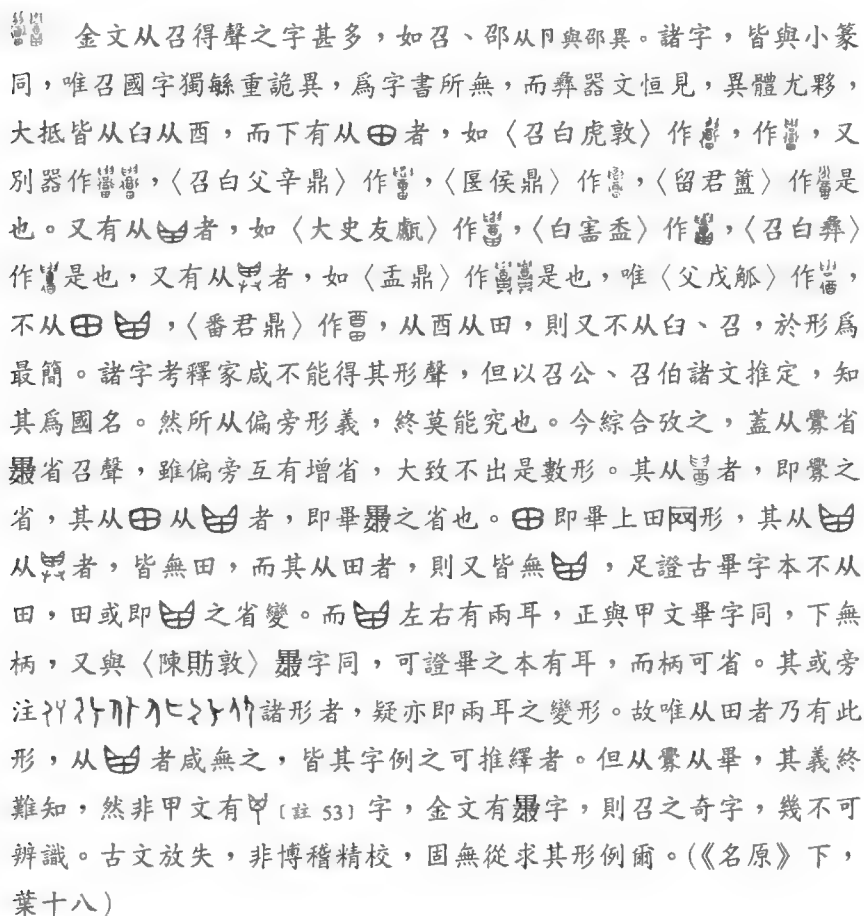 金文从召得聲之字甚多，如召、邵从卩與邵異。諸字，皆與小篆
同，唯召國字獨緐重詭異，爲字書所無，而彝器文恒見，異體尤夥，
大抵皆从臼从酉，而下有从者，如〈召白虎敦〉作，作，又
別器作，〈召白父辛鼎〉作，〈匽侯鼎〉作，〈留君簠〉作是
也。又有从者，如〈大史友甗〉作，〈白害盉〉作，〈召白彝〉
作是也，又有从者，如〈盂鼎〉作是也，唯〈父戊觚〉作，
不从，〈番君鼎〉作，从酉从田，則又不从臼、召，於形爲
最簡。諸字考釋家咸不能得其形聲，但以召公、召伯諸文推定，知
其爲國名。然所从偏旁形義，終莫能究也。今綜合攷之，蓋从釁省
省召聲，雖偏旁互有增省，大致不出是數形。其从者，即釁之
省，其从从者，即畢之省也。即畢上田网形，其从
从者，皆無田，而其从田者，則又皆無，足證古畢字本不从
田，田或即之省變。而左右有兩耳，正與甲文畢字同，下無
柄，又與〈陳肪敦〉字同，可證畢之本有耳，而柄可省。其或旁
注諸形者，疑亦即兩耳之變形。故唯从田者乃有此
形，从者咸無之，皆其字例之可推繹者。但从釁从畢，其義終
難知，然非甲文有［註 53］字，金文有字，則召之奇字，幾不可
辨識。古文放失，非博稽精校，固無從求其形例爾。(《名原》下，
葉十八)